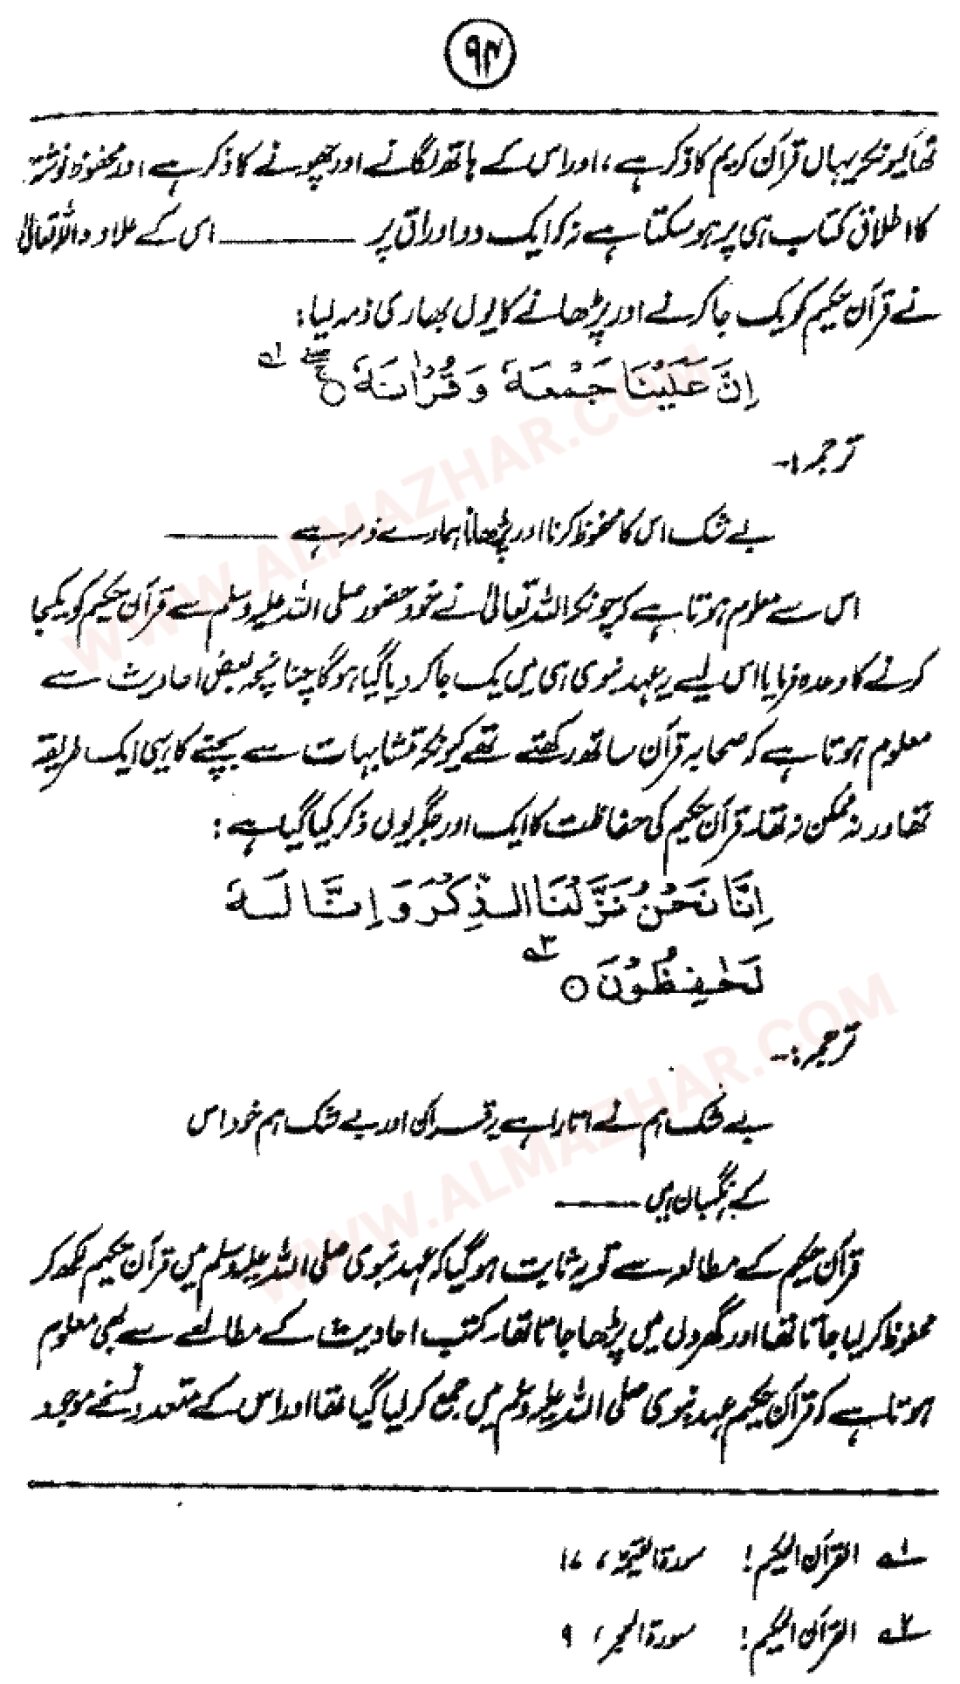 ۹۴
تھا کیونکہ یہاں قرآن کریم کا ذکر ہے، اور اس کے ہاتھ لگانے اور چھونے کا ذکر ہے اور محفوظ نوشتہ
کا اطلاق کتاب ہی پر ہو سکتا ہے نہ کہ ایک دو اوراق پر ــــــــ اس کے علاوہ اللہ تعالیٰ
نے قرآن حکیم کو یک جا کرنے اور پڑھانے کا یوں بھاری ذمہ لیا:
اِنَّ عَلَيْنَا جَمْعَهٗ وَقُرْاٰنَهٗ ۝ ۱ے
ترجمہ :-
بے شک اس کا محفوظ کرنا اور پڑھانا ہمارے ذمہ ہے ــــــــ
اس سے معلوم ہوتا ہے کہ چونکہ اللہ تعالیٰ نے خود حضور صلی اللہ علیہ وسلم سے قرآن حکیم کو یکجا
کرنے کا وعدہ فرمایا اس لیے یہ عہد نبوی ہی میں یک جا کر دیا گیا ہوگا چنانچہ بعض احادیث سے
معلوم ہوتا ہے کہ صحابہ قرآن ساتھ رکھتے تھے کیونکہ متشابہات سے بچنے کا یہی ایک طریقہ
تھا ورنہ ممکن نہ تھا۔ قرآن حکیم کی حفاظت کا ایک اور جگہ یوں ذکر کیا گیا ہے:
اِنَّا نَحْنُ نَزَّلْنَا الذِّكْرَ وَاِنَّا لَهٗ
لَحٰفِظُوْنَ ۝ ۳ے
ترجمہ :-
بے شک ہم نے اتارا ہے یہ قرآن اور بے شک ہم خود اس
کے نگہبان ہیں ــــــــ
قرآن حکیم کے مطالعہ سے تو یہ ثابت ہو گیا کہ عہد نبوی صلی اللہ علیہ وسلم میں قرآن حکیم لکھ کر
محفوظ کر لیا جاتا تھا اور گھروں میں پڑھا جاتا تھا۔ کتب احادیث کے مطالعے سے بھی معلوم
ہوتا ہے کہ قرآن حکیم عہد نبوی صلی اللہ علیہ وسلم میں جمع کر لیا گیا تھا اور اس کے متعدد نسخے موجود
۱ے القرآن الحکیم! سورۃ القیٰمۃ، ۱۷
۲ے القرآن الحکیم! سورۃ الحجر، ۹
WWW.ALMAZHAR.COM
WWW.ALMAZHAR.COM